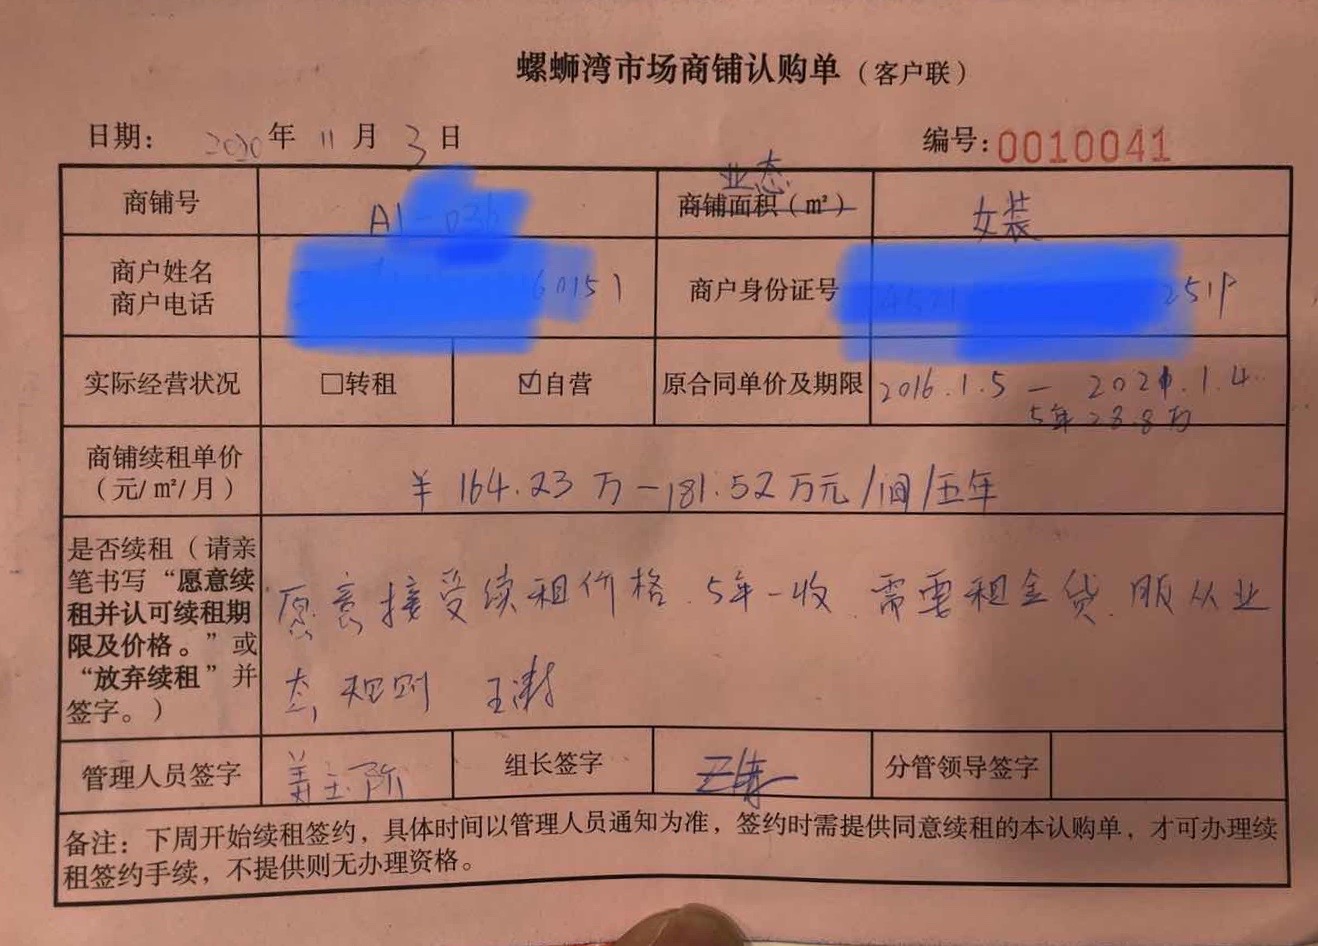 螺蛳湾市场商铺认购单（客户联）
日期： 2020年 11月 3日 编号:0010041
业态
商铺号 A1- 商铺面积（m²） 女装
商户姓名
商户电话 60151 商户身份证号 251
实际经营状况 □转租 ☑自营 原合同单价及期限 2016.1.5 — 2021.1.4
5年28.8万
商铺续租单价
（元/m²/月） ¥164.23万-181.52万元/间/五年
是否续租（请亲
笔书写“愿意续
租并认可续租期
限及价格。”或
“放弃续租”并
签字。）
愿意接受续租价格.5年一收.需要租金贷.服从业
态规则
管理人员签字 组长签字 分管领导签字
备注：下周开始续租签约，具体时间以管理人员通知为准，签约时需提供同意续租的本认购单，才可办理续
租签约手续，不提供则无办理资格。